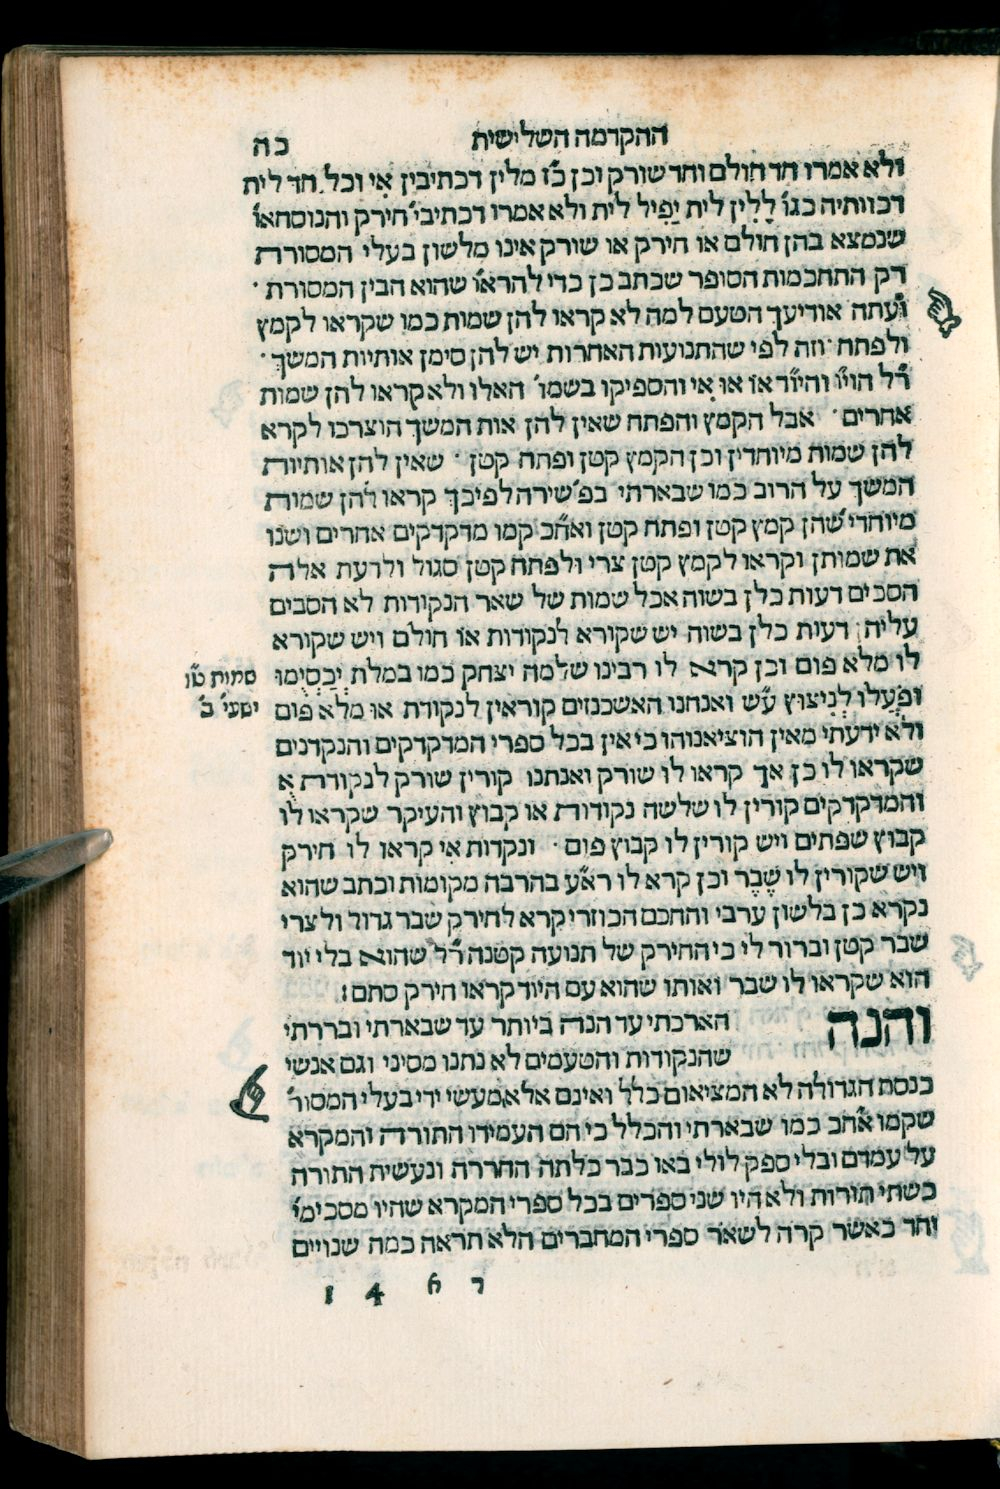 ההקדמה השלישית כה
ולא אמרו חד חולם וחד שורק וכן כ֞ז מלין דכתיבין אִי וכל חד לית
דכוותיה כגו֞ לָלִין לית יַפִיל לית ולא אמרו דכתיבי֞ חירק והנוסחאו֞
שנמצא בהן חולם או חירק או שורק אינו מלשון בעלי המסורת
רק התחכמות הסופר שכתב כן כדי להראו֞ שהוא הבין המסורת ·
ועתה אודיעך הטעם למה לא קראו להן שמות כמו שקראו לקמץ
ולפתח · וזה לפי שהתנועות האחרות יש להן סימן אותיות המשך ·
ר֞ל הוי֞ו והיו֞ד אוֹ אוּ אִי והספיקו בשמו֞ האלו ולא קראו להן שמות
אחרים · אבל הקמץ והפתח שאין להן אות המשך הוצרכו לקרא
להן שמות מיוחדין וכן הקמץ קטן ופתח קטן · שאין להן אותיות
המשך על הרוב כמו שבארתי בפ֞ שירה לפיכך קראו להן שמות
מיוחדי֞ שהן קמץ קטן ופתח קטן ואח֞כ קמו מדקדקים אחרים ושנו
את שמותן וקראו לקמץ קטן צרי ולפתח קטן סגול ולדעת אלה
הסכים דעות כלן בשוה אכל שמות של שאר הנקידות לא הסבים
עליה דעות כלן בשוה יש שקורא לנקודות אוֹ חולם ויש שקורא
לו מלא פום וכן קרא לו רבינו שלמה יצחק כמו במלת יְכַסְיֻמוּ
ופָעֳלו לְנִיצוֹץ ע֞ש ואנחנו האשכנזים קוראין לנקודת אוּ מלא פום
ולא ידעתי מאין הוציאנוהו כי אין בכל ספרי המדקדקים והנקדנים
שקראו לו כן אך קראו לו שורק ואנחנו קורין שורק לנקודת אֻ
והמדקדקים קורין לו שלשה נקודות או קבוץ והעיקר שקראו לו
קבוץ שפתים ויש קורין לו קבוץ פום · ונקדות אִי קראו לו חירק
ויש שקורין לו שֶבֶר וכן קרא לו רא֞ע בהרבה מקומות וכתב שהוא
נקרא כן בלשון ערבי והחכם הכוזרי קרא לחירק שבר גדול ולצרי
שבר קטן וברור לי כי החירק של תנועה קטנה ר֞ל שהוא בלי יוד
הוא שקראו לו שבר ואותו שהוא עם היוד קראו חירק סתם:
והנה הארכתי עד הנה ביותר עד שבארתי ובררתי
שהנקודות והטעמים לא נתנו מסיני וגם אנשי
כנסת הגדולה לא המציאום כלל ואינם אלא מעשי ידי בעלי המסור֞
שקמו אח֞כ כמו שבארתי והכלל כי הם העמידו התורה והמקרא
על עמדם ובלי ספק לולי באו כבר כלתה החררה ונעשית התורה
כשתי תורות ולא היו שני ספרים בכל ספרי המקרא שהיו מסכימי֞
יחד כאשר קרה לשאר ספרי המחברים הלא תראה כמה שנויים
שמות ט֞ו
ישעי֞ ב֞
1 4